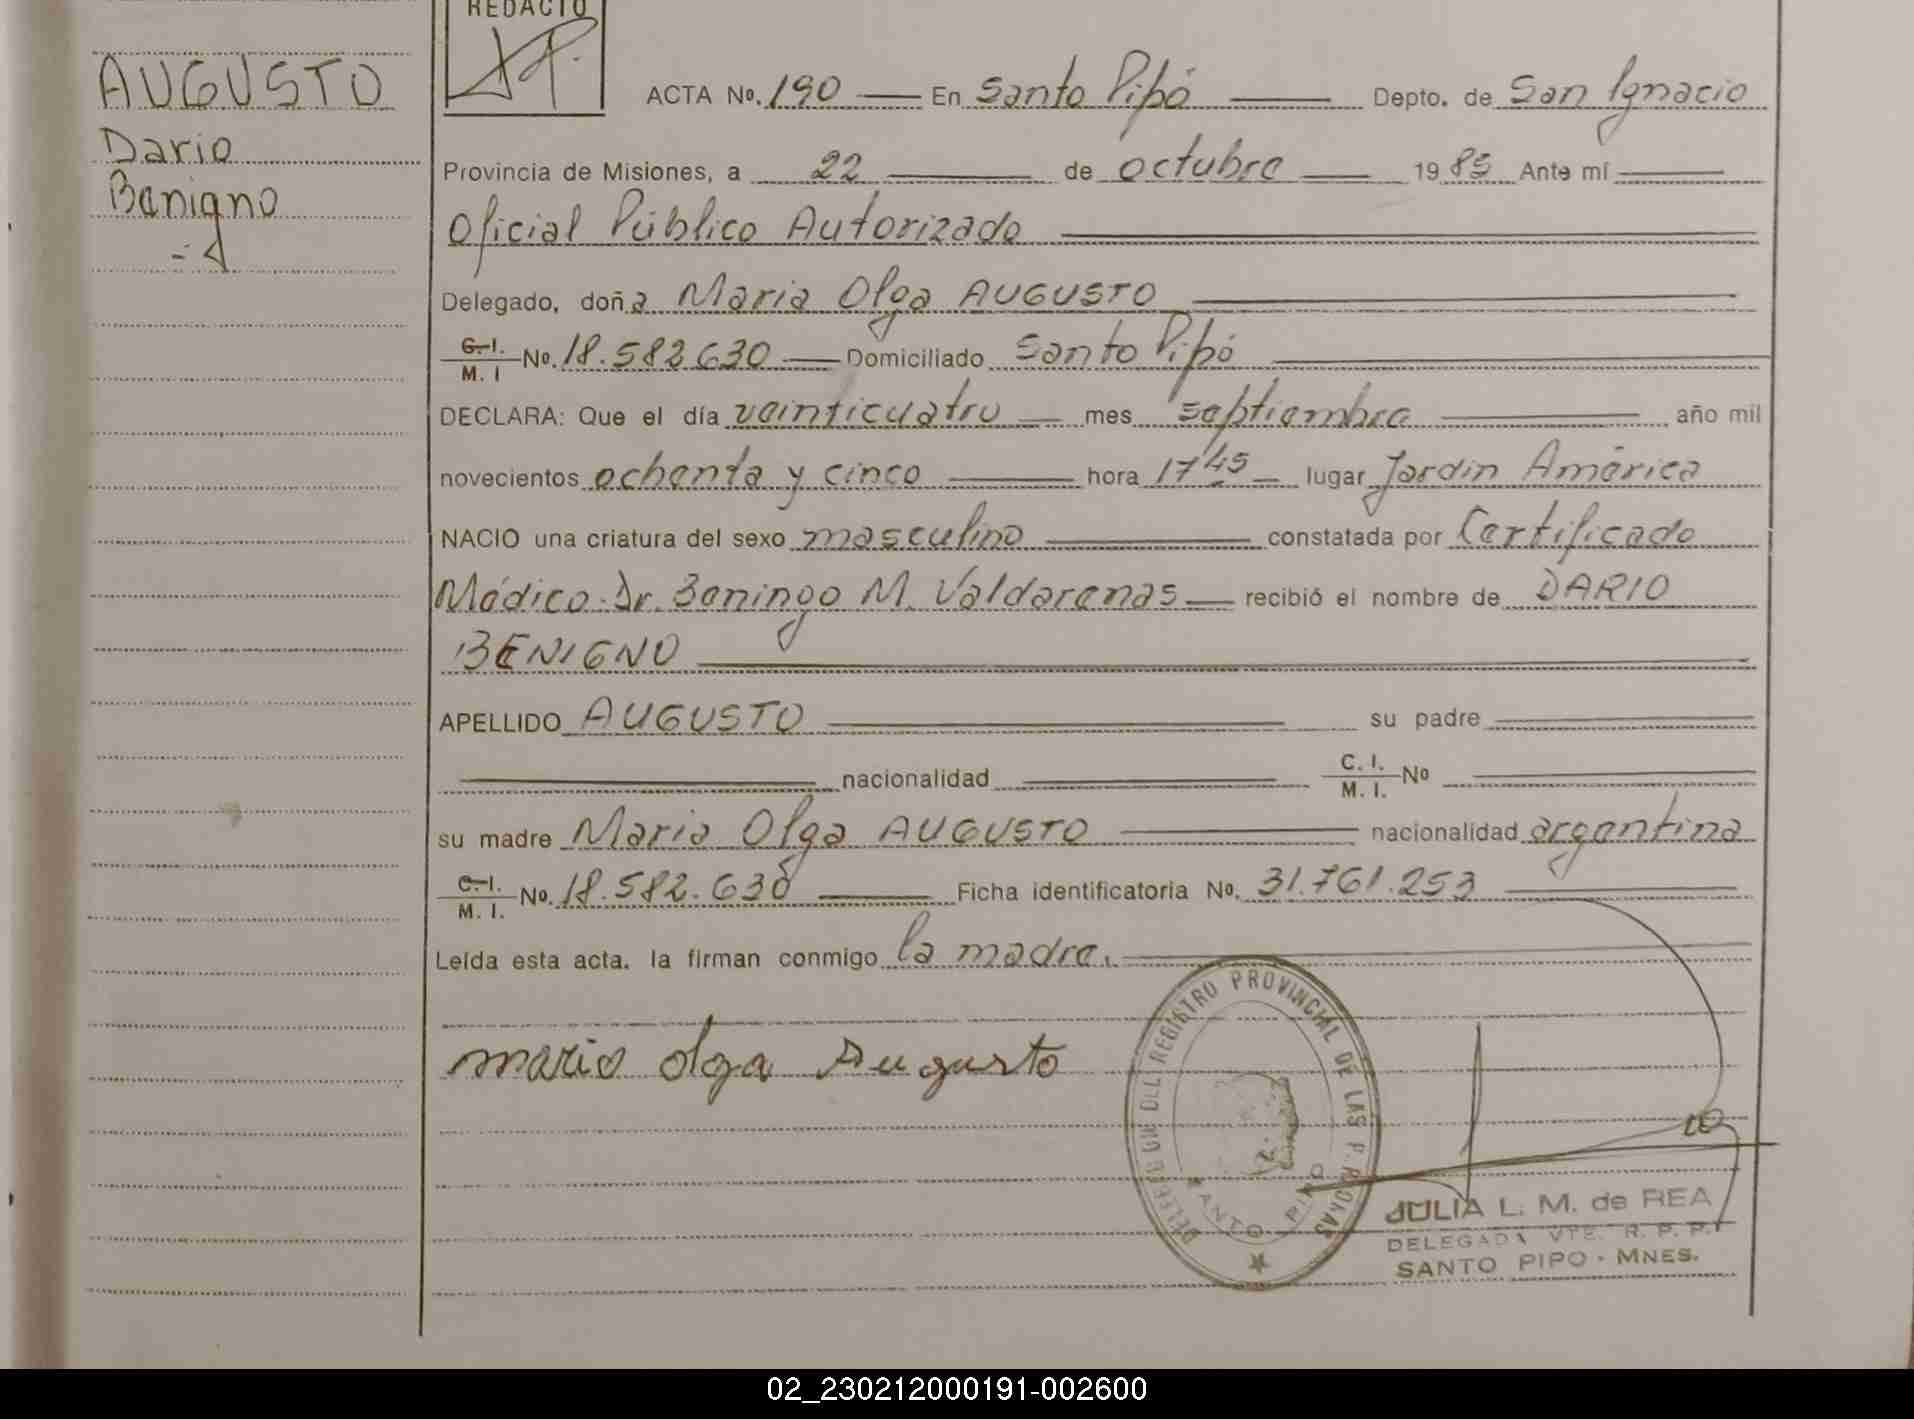 REDACTO
AUGUSTO
Dario
Benigno
ACTA No. 190 En Santo Pipó Depto. de San Ignacio
Provincia de Misiones, a 22 de octubre 1985 Ante mí
Oficial Público Autorizado
Delegado, doña Maria Olga AUGUSTO
C.I. M.I No. 18.582.630 Domiciliado Santo Pipó
DECLARA: Que el día veinticuatro mes septiembre año mil
novecientos ochenta y cinco hora 17 45 lugar Jardin América
NACIO una criatura del sexo masculino constatada por Certificado
Médico. Dr. Beningo M. Valdarenas recibió el nombre de DARIO
BENIGNO
APELLIDO AUGUSTO su padre
nacionalidad C.I. M.I. No
su madre Maria Olga AUGUSTO nacionalidad argentina
C.I. M.I. No. 18.582.630 Ficha identificatoria No. 31.761.253
Leída esta acta. la firman conmigo la madre.
maria olga Augusto
DELEGACION DEL REGISTRO PROVINCIAL DE LAS PERSONAS
SANTO PIPO
JULIA L. M. de REA
DELEGADA VTE. R. P. P.
SANTO PIPO - MNES.
02_230212000191-002600